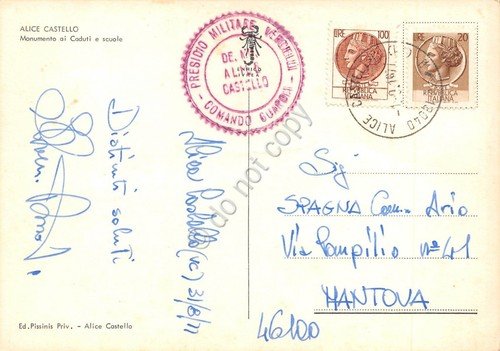 ALICE CASTELLO
Monumento ai Caduti e scuole
PRESIDIO MILITARE
ALICE
CASTELLO
COMANDO
LIRE 100
REPUBBLICA
ITALIANA
20
ALICE
Distinti saluti
Alice Castello (VC) 31/8/71
Sig
SPAGNA Cav. Ario
Via Pompilio nº 41
MANTOVA
46100
Ed. Pissinis Priv. - Alice Castello
do not copy